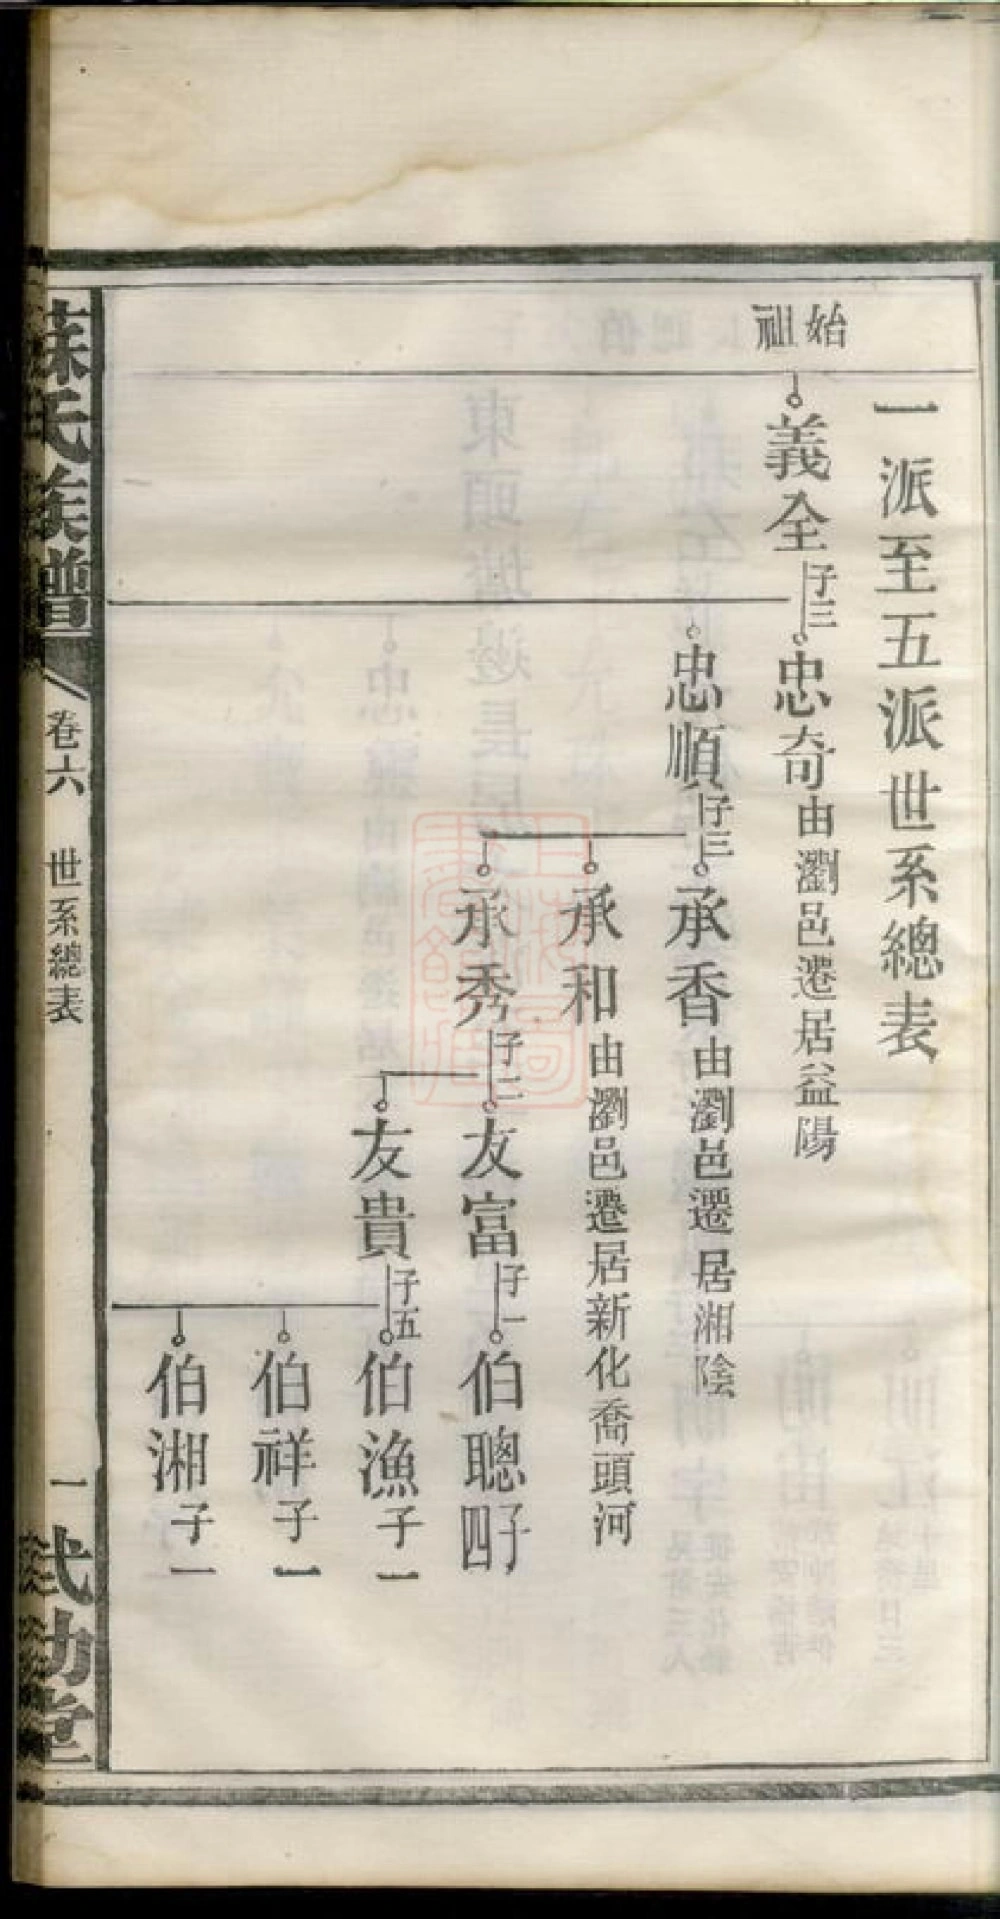 始祖
一派至五派世系總表
義全子三
忠奇由瀏邑遷居益陽
忠順子三
承香由瀏邑遷居湘陰
承和由瀏邑遷居新化喬頭河
承秀子二
友富子一
伯聰子四
友貴子五
伯漁子一
伯祥子一
伯湘子一
蘇氏族譜
卷六
世系總表
一
武功堂